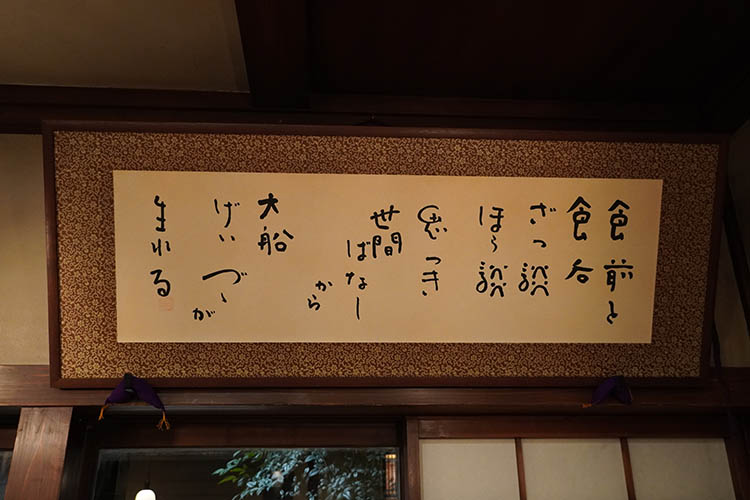 食前と
食后
ざつ談
ほう談
思つき
世間
ばなし
から
大船
げい
づゝ
が
生れる